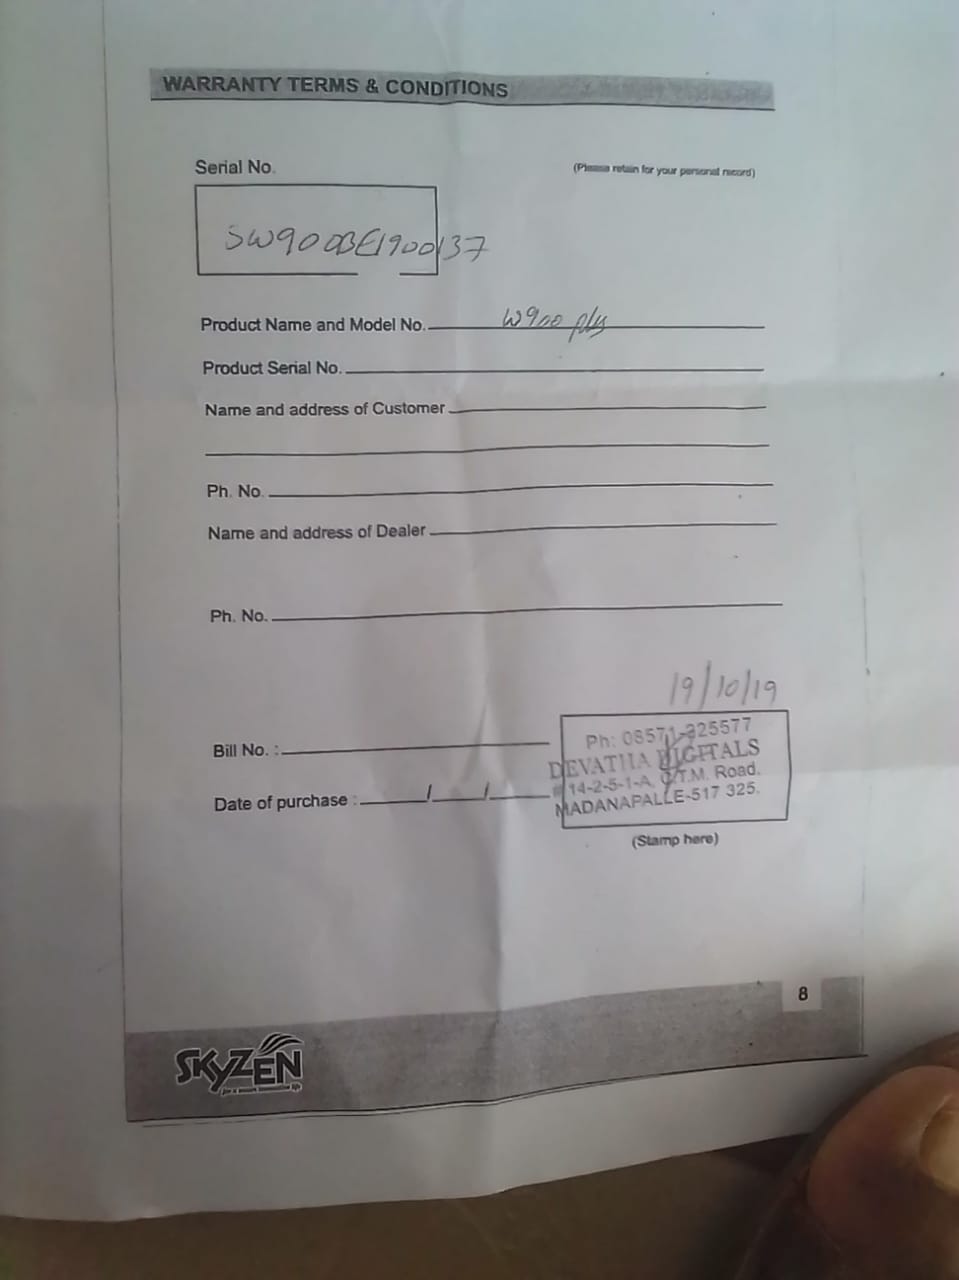 WARRANTY TERMS & CONDITIONS
Serial No.
(Please retain for your personal record)
SW900BE1900137
Product Name and Model No. W900 plus
Product Serial No.
Name and address of Customer
Ph. No.
Name and address of Dealer
Ph. No.
19/10/19
Bill No. :
Ph: 08571-225577
DEVATHA DIGITALS
# 14-2-5-1-A, C.T.M. Road.
MADANAPALLE-517 325.
Date of purchase : / /
(Stamp here)
8
SKYZEN